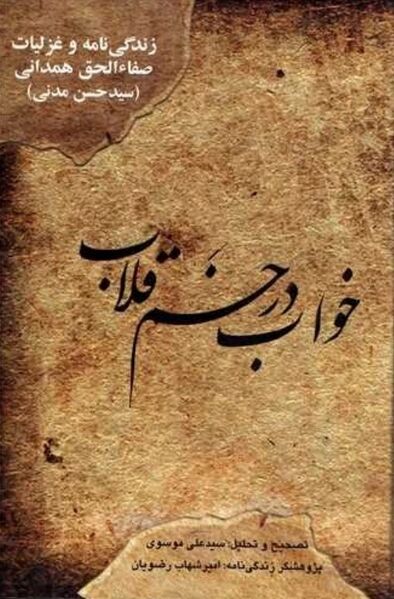 زندگی‌نامه و غزلیات
صفاءالحق همدانی
(سیدحسن مدنی)
خواب در خَم قلاب
تصحیح و تحلیل: سیدعلی موسوی
پژوهشگر زندگی‌نامه: امیرشهاب رضویان